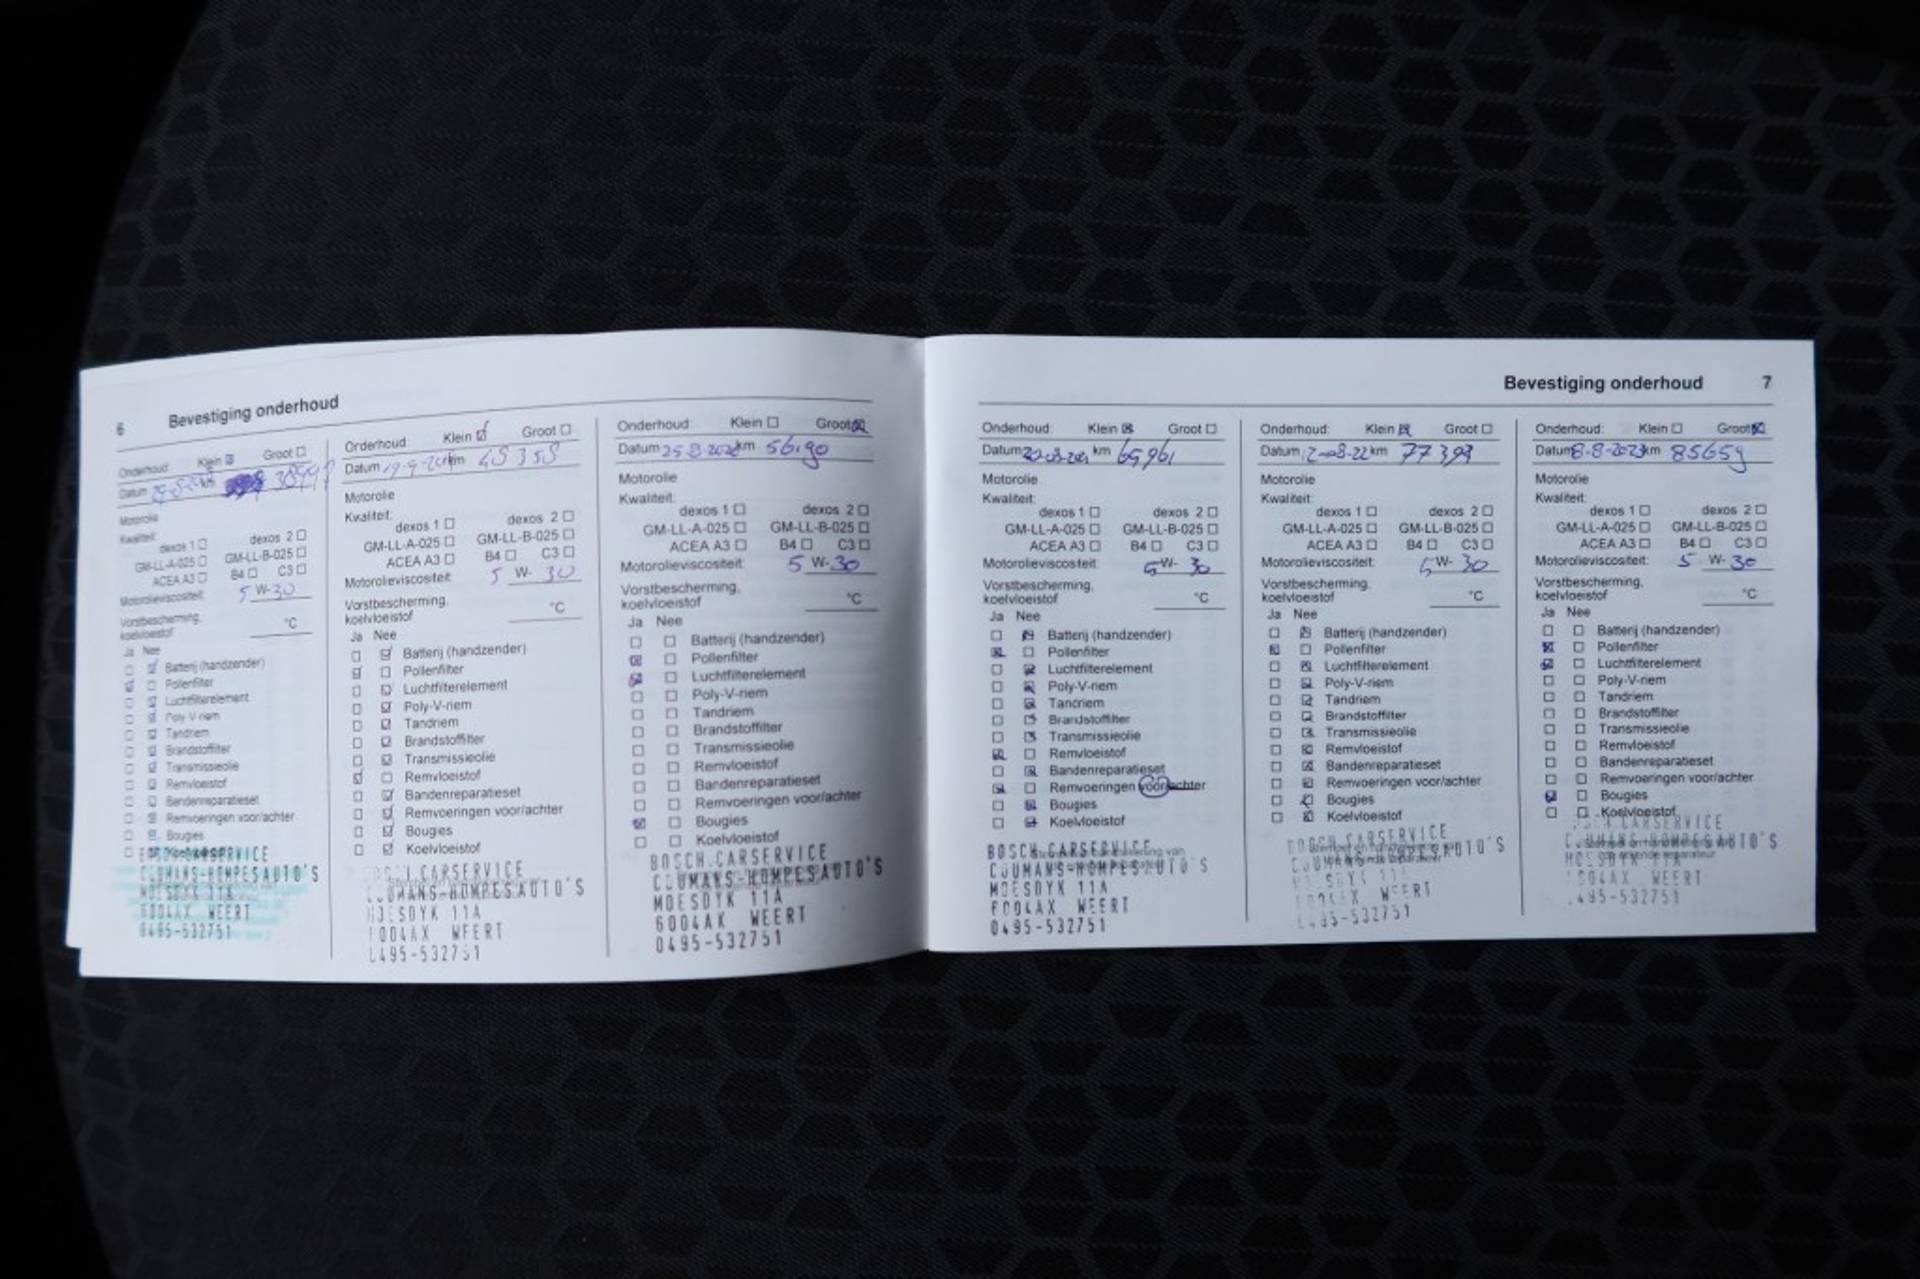 6 Bevestiging onderhoud
Onderhoud: Klein Groot
Datum km
Motorolie
Kwaliteit:
dexos 1 dexos 2
GM-LL-A-025 GM-LL-B-025
ACEA A3 B4 C3
Motorolieviscositeit: 5 W-30
Vorstbescherming,
koelvloeistof °C
Ja Nee
Batterij (handzender)
Pollenfilter
Luchtfilterelement
Poly V-riem
Tandriem
Brandstoffilter
Transmissieolie
Remvloeistof
Bandenreparatieset
Remvoeringen voor/achter
Bougies
COUMANS-HOMPESAUTO'S
MOESDYK 11A
6004AX WEERT
0495-532751
Onderhoud Klein Groot
Datum 19-9- km 48358
Motorolie
Kwaliteit:
dexos 1 dexos 2
GM-LL-A-025 GM-LL-B-025
ACEA A3 B4 C3
Motorolieviscositeit: 5 W-30
Vorstbescherming,
koelvloeistof °C
Ja Nee
Batterij (handzender)
Pollenfilter
Luchtfilterelement
Poly-V-riem
Tandriem
Brandstoffilter
Transmissieolie
Remvloeistof
Bandenreparatieset
Remvoeringen voor/achter
Bougies
Koelvloeistof
CARSERVICE
COUMANS-HOMPESAUTO'S
MOESDYK 11A
6004AX WEERT
0495-532751
Onderhoud: Klein Groot
Datum 25-8-2020 km 56190
Motorolie
Kwaliteit:
dexos 1 dexos 2
GM-LL-A-025 GM-LL-B-025
ACEA A3 B4 C3
Motorolieviscositeit: 5 W-30
Vorstbescherming,
koelvloeistof °C
Ja Nee
Batterij (handzender)
Pollenfilter
Luchtfilterelement
Poly-V-riem
Tandriem
Brandstoffilter
Transmissieolie
Remvloeistof
Bandenreparatieset
Remvoeringen voor/achter
Bougies
Koelvloeistof
BOSCH CARSERVICE
COUMANS-HOMPESAUTO'S
MOESDYK 11A
6004AX WEERT
0495-532751
Bevestiging onderhoud 7
Onderhoud: Klein Groot
Datum 20-08-2021 km 65961
Motorolie
Kwaliteit:
dexos 1 dexos 2
GM-LL-A-025 GM-LL-B-025
ACEA A3 B4 C3
Motorolieviscositeit: 5 W- 30
Vorstbescherming,
koelvloeistof °C
Ja Nee
Batterij (handzender)
Pollenfilter
Luchtfilterelement
Poly-V-riem
Tandriem
Brandstoffilter
Transmissieolie
Remvloeistof
Bandenreparatieset
Remvoeringen voor/achter
Bougies
Koelvloeistof
BOSCH CARSERVICE
COUMANS-HOMPESAUTO'S
MOESDYK 11A
6004AX WEERT
0495-532751
Onderhoud: Klein Groot
Datum 2-08-22 km 77393
Motorolie
Kwaliteit:
dexos 1 dexos 2
GM-LL-A-025 GM-LL-B-025
ACEA A3 B4 C3
Motorolieviscositeit: 5 W- 30
Vorstbescherming,
koelvloeistof °C
Ja Nee
Batterij (handzender)
Pollenfilter
Luchtfilterelement
Poly-V-riem
Tandriem
Brandstoffilter
Transmissieolie
Remvloeistof
Bandenreparatieset
Remvoeringen voor/achter
Bougies
Koelvloeistof
BOSCH CARSERVICE
WEERT
Onderhoud: Klein Groot
Datum 8-8-2023 km 85659
Motorolie
Kwaliteit:
dexos 1 dexos 2
GM-LL-A-025 GM-LL-B-025
ACEA A3 B4 C3
Motorolieviscositeit: 5 W- 30
Vorstbescherming,
koelvloeistof °C
Ja Nee
Batterij (handzender)
Pollenfilter
Luchtfilterelement
Poly-V-riem
Tandriem
Brandstoffilter
Transmissieolie
Remvloeistof
Bandenreparatieset
Remvoeringen voor/achter
Bougies
Koelvloeistof
CARSERVICE
WEERT